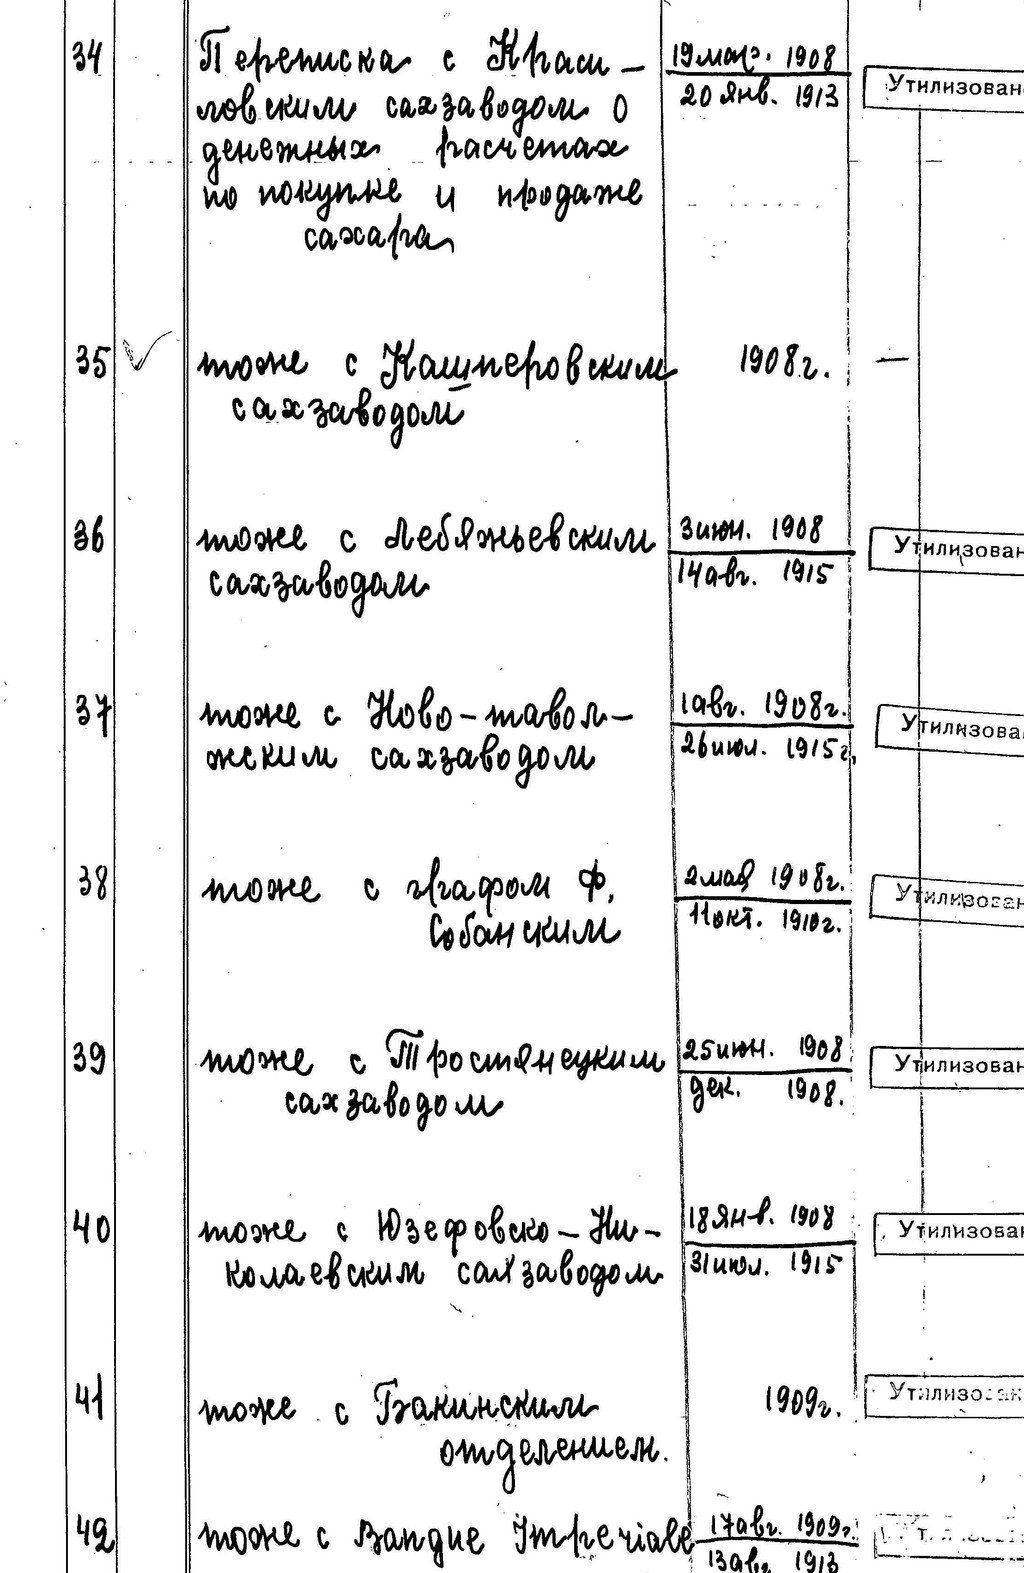 34 Переписка с Краси- 19 мар. 1908 Утилизован
ловским сахзаводом о 20 янв. 1913
денежных расчетах
по покупке и продаже
сахара
35 тоже с Кашперовским 1908 г. —
сахзаводом
36 тоже с Лебяжьевским 3 июн. 1908 Утилизован
сахзаводом 14 авг. 1915
37 тоже с Ново-тавол- 1 авг. 1908 г. Утилизова
жским сахзаводом 26 июл. 1915 г.
38 тоже с графом Ф. 2 мая 1908 г. Утилизован
Собанским 11 окт. 1910 г.
39 тоже с Тростянецким 25 июн. 1908 Утилизован
сахзаводом дек. 1908.
40 тоже с Юзефовско-Ни- 18 янв. 1908 Утилизован
колаевским сахзаводом 31 июл. 1915
41 тоже с Бакинским 1909 г. Утилизован
отделением.
42 тоже с 17 авг. 1909 г.
13 авг 1913